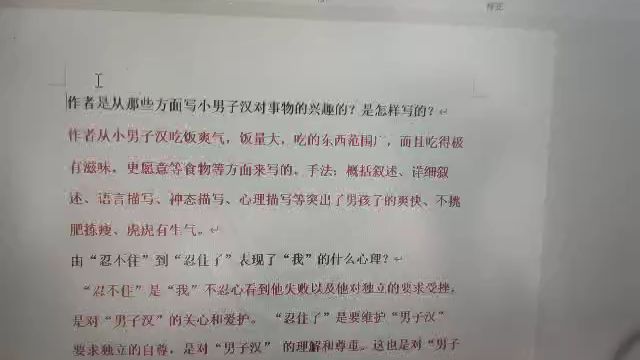 作者是从那些方面写小男子汉对事物的兴趣的？是怎样写的？
作者从小男子汉吃饭爽气，饭量大，吃的东西范围广，而且吃得极
有滋味，更愿意等食物等方面来写的。手法：概括叙述、详细叙
述、语言描写、神态描写、心理描写等突出了男孩子的爽快、不挑
肥拣瘦、虎虎有生气。
由“忍不住”到“忍住了”表现了“我”的什么心理？
“忍不住”是“我”不忍心看到他失败以及他对独立的要求受挫，
是对“男子汉”的关心和爱护。 “忍住了”是要维护“男子汉”
要求独立的自尊，是对“男子汉” 的理解和尊重。这也是对“男子